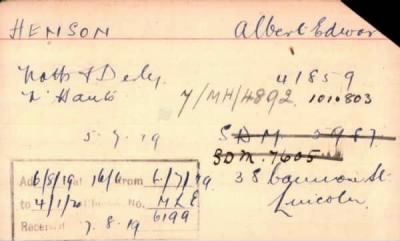 HENSON Albert Edwar
Notts & Derby. 41859
N' Hants 7/MH/4892 1010803
5.7.19 S.D.M. 5987
SDM. 7605
6/8/19 at 16/6 from 6/7/19 38 Cannon St.
to 4/1/20 No. MLE Lincoln
Received 7.8.19 6199